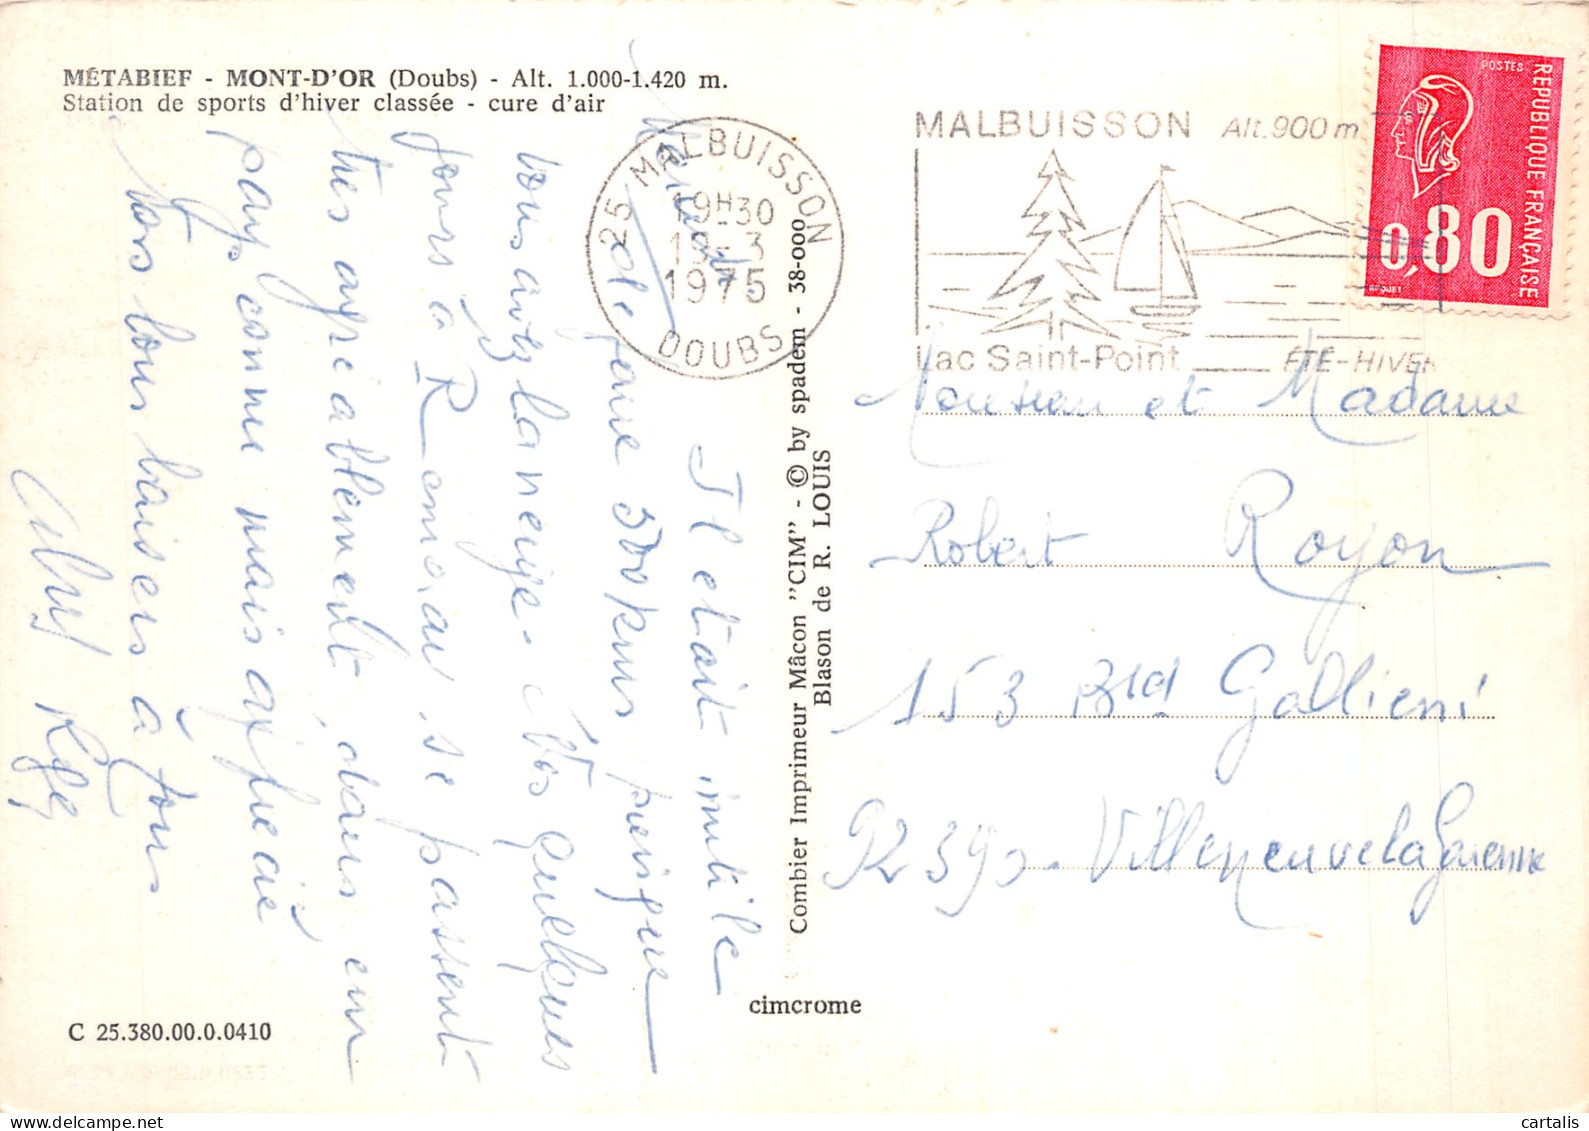 MÉTABIEF - MONT-D'OR (Doubs) - Alt. 1.000-1.420 m.
Station de sports d'hiver classée - cure d'air
Il était inutile
de faire 500 kms puisque
vous avez la neige. Nos quelques
jours à Remoray se passent
très agréablement, dans un
pays connu mais apprécié
Nos bons baisers à tous
C 25.380.00.0.0410
25 MALBUISSON
19H30
19-3
1975
DOUBS
Combier Imprimeur Mâcon "CIM" - © by spadem - 38-000
Blason de R. LOUIS
cimcrome
MALBUISSON Alt. 900 m
Lac Saint-Point ÉTÉ-HIVER
POSTES
RÉPUBLIQUE FRANÇAISE
0,80
BEQUET
Monsieur et Madame
Robert Royon
153 Bld Gallieni
92390 - Villeneuve la Garenne
cartalis